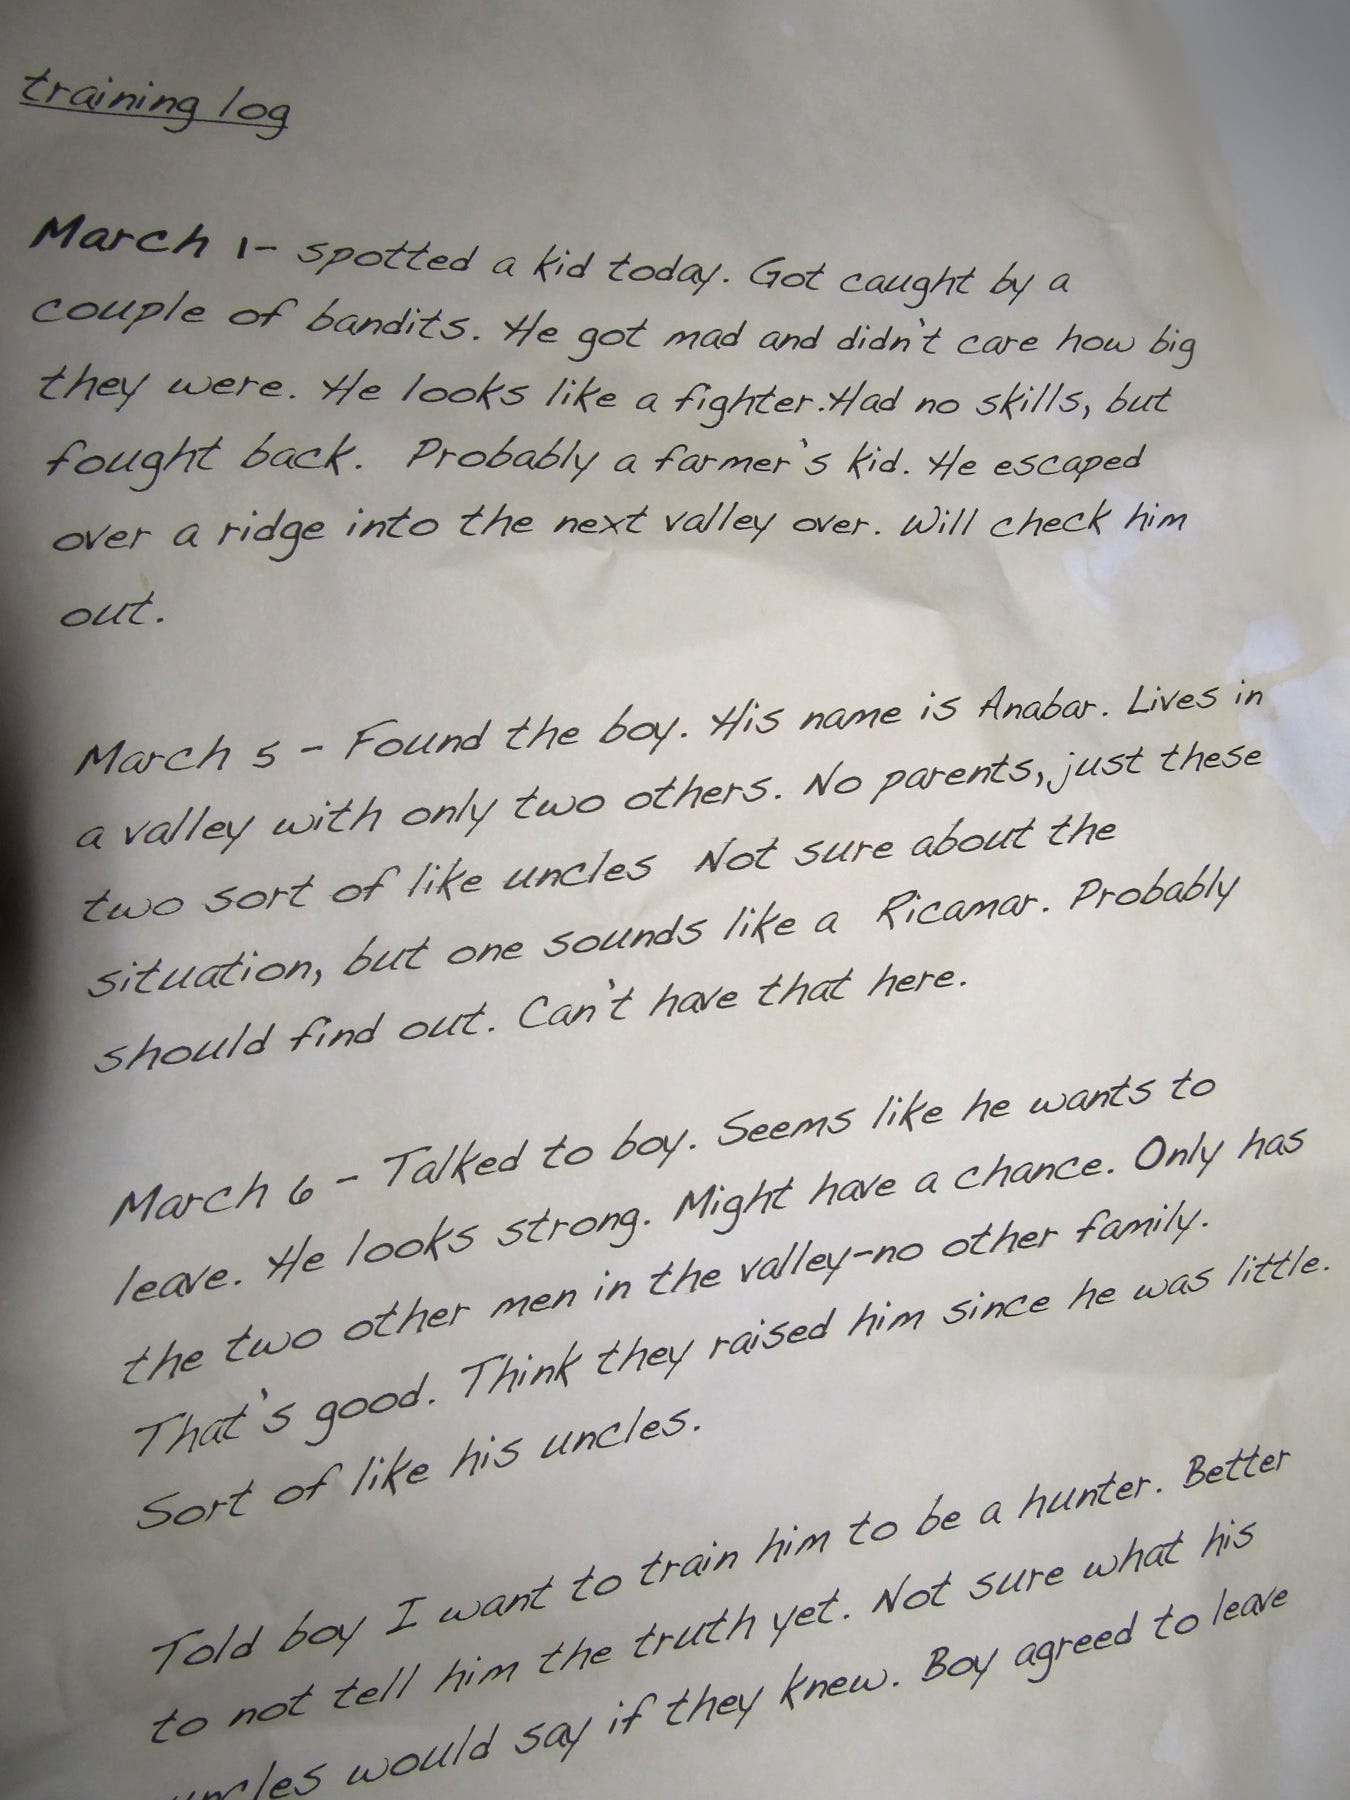 training log
March 1- spotted a kid today. Got caught by a
couple of bandits. He got mad and didn't care how big
they were. He looks like a fighter. Had no skills, but
fought back. Probably a farmer's kid. He escaped
over a ridge into the next valley over. Will check him
out.
March 5 - Found the boy. His name is Anabar. Lives in
a valley with only two others. No parents, just these
two sort of like uncles Not sure about the
situation, but one sounds like a Ricamar. Probably
should find out. Can't have that here.
March 6 - Talked to boy. Seems like he wants to
leave. He looks strong. Might have a chance. Only has
the two other men in the valley-no other family.
That's good. Think they raised him since he was little.
Sort of like his uncles.
Told boy I want to train him to be a hunter. Better
to not tell him the truth yet. Not sure what his
uncles would say if they knew. Boy agreed to leave